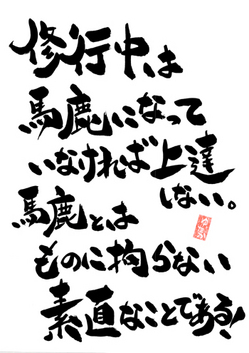 修行中は
馬鹿になって
いなければ上達
しない。
馬鹿とは
ものに拘らない
素直なことである!